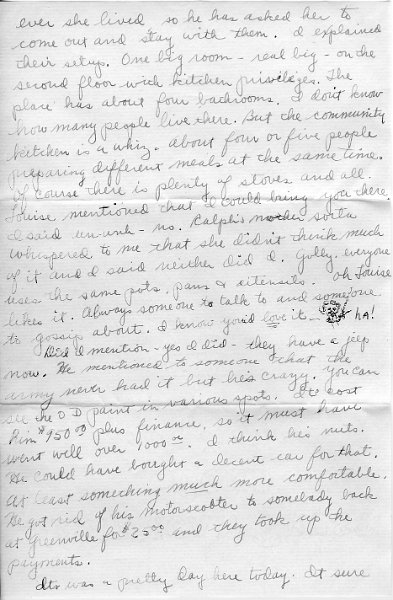 ever she lived so he has asked her to
come out and stay with them. I explained
their setup. One big room - real big - on the
second floor with kitchen privileges. The
place has about four bathrooms. I don't know
how many people live there. But the community
kitchen is a whiz. about four or five people
preparing different meals at the same time.
Of course there is plenty of stoves and all.
Louise mentioned that I could bring you there.
I said un-unh - no. Ralph's mother sorta
whispered to me that she didn't think much
of it and I said neither did I. Golly, everyone
uses the same pots, pans & utensiles. Oh Louise
likes it. Always someone to talk to and someone
to gossip about. I know you'd love it - HA!
Did I mention - yes I did - they have a jeep
now. He mentioned to someone that the
army never had it but he's crazy. You can
see the O D paint in various spots. It cost
him $950.00 plus finance, so it must have
went well over 1000.00. I think he's nuts.
He could have bought a decent car for that.
At least something much more comfortable.
He got rid of his motorscooter to somebody back
at Greenville for $25.00 and they took up the
payments.
It was a pretty day here today. It sure